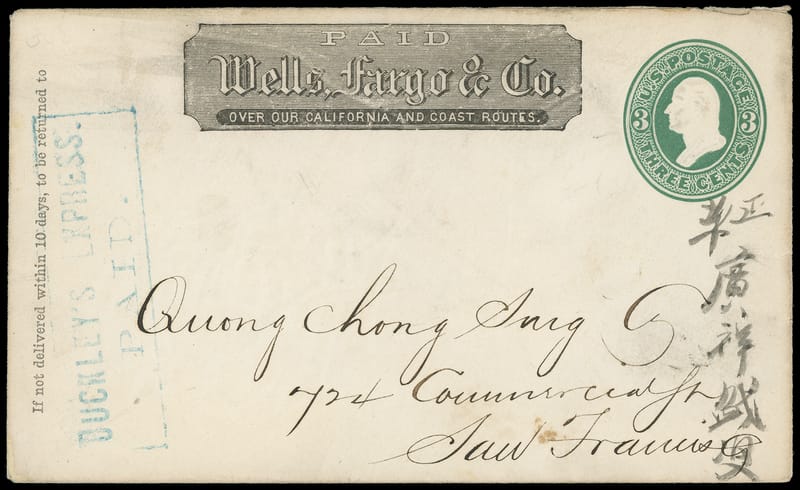 PAID
Wells, Fargo & Co.
OVER OUR CALIFORNIA AND COAST ROUTES.
U.S. POSTAGE
3 3
THREE CENTS
If not delivered within 10 days, to be returned to
BUCKLEY'S EXPRESS.
PAID.
Quong Chong Sing
724 Commercial St
San Francisco
廣祥盛